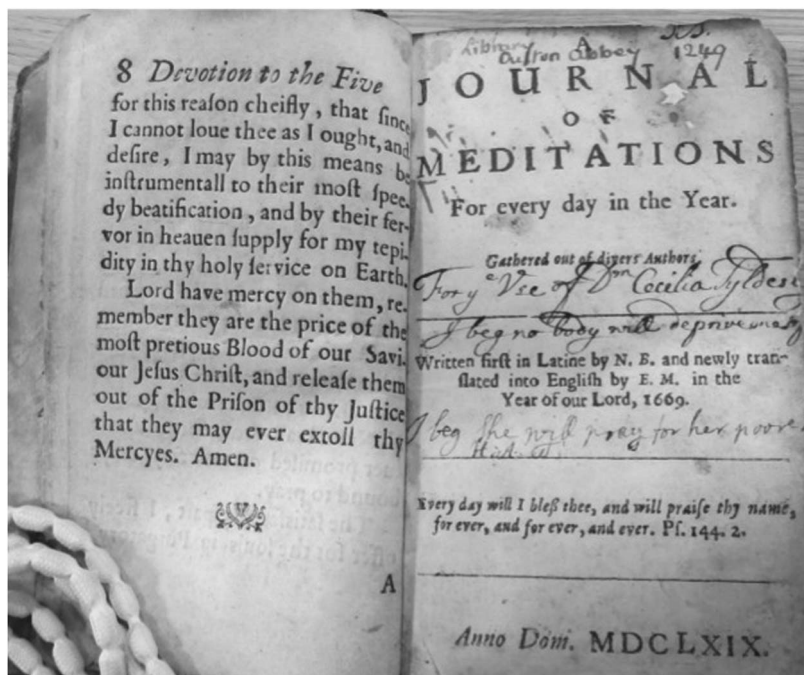 8 Devotion to the Five
for this reaſon cheifly, that ſince
I cannot loue thee as I ought, and
deſire, I may by this means be
inſtrumentall to their moſt ſpee-
dy beatification, and by their fer-
vor in heauen ſupply for my tepi-
dity in thy holy ſervice on Earth.
Lord have mercy on them, re-
member they are the price of the
moſt pretious Blood of our Savi-
our Jeſus Chriſt, and releaſe them
out of the Priſon of thy Juſtice
that they may ever extoll thy
Mercyes. Amen.
A
Library
Oulton Abbey 1249
A
JOURNAL
OF
MEDITATIONS
For every day in the Year.
Gathered out of divers Authors,
For yᵉ Vse of Dᵐ Cecilia Tyldesly
I beg no body will deprive
Written firſt in Latine by N. B. and newly tran-
ſlated into Engliſh by E. M. in the
Year of our Lord, 1669.
I beg She will pray for her poore
Every day will I bleſs thee, and will praiſe thy name,
for ever, and for ever, and ever. Pſ. 144. 2.
Anno Dom. MDCLXIX.